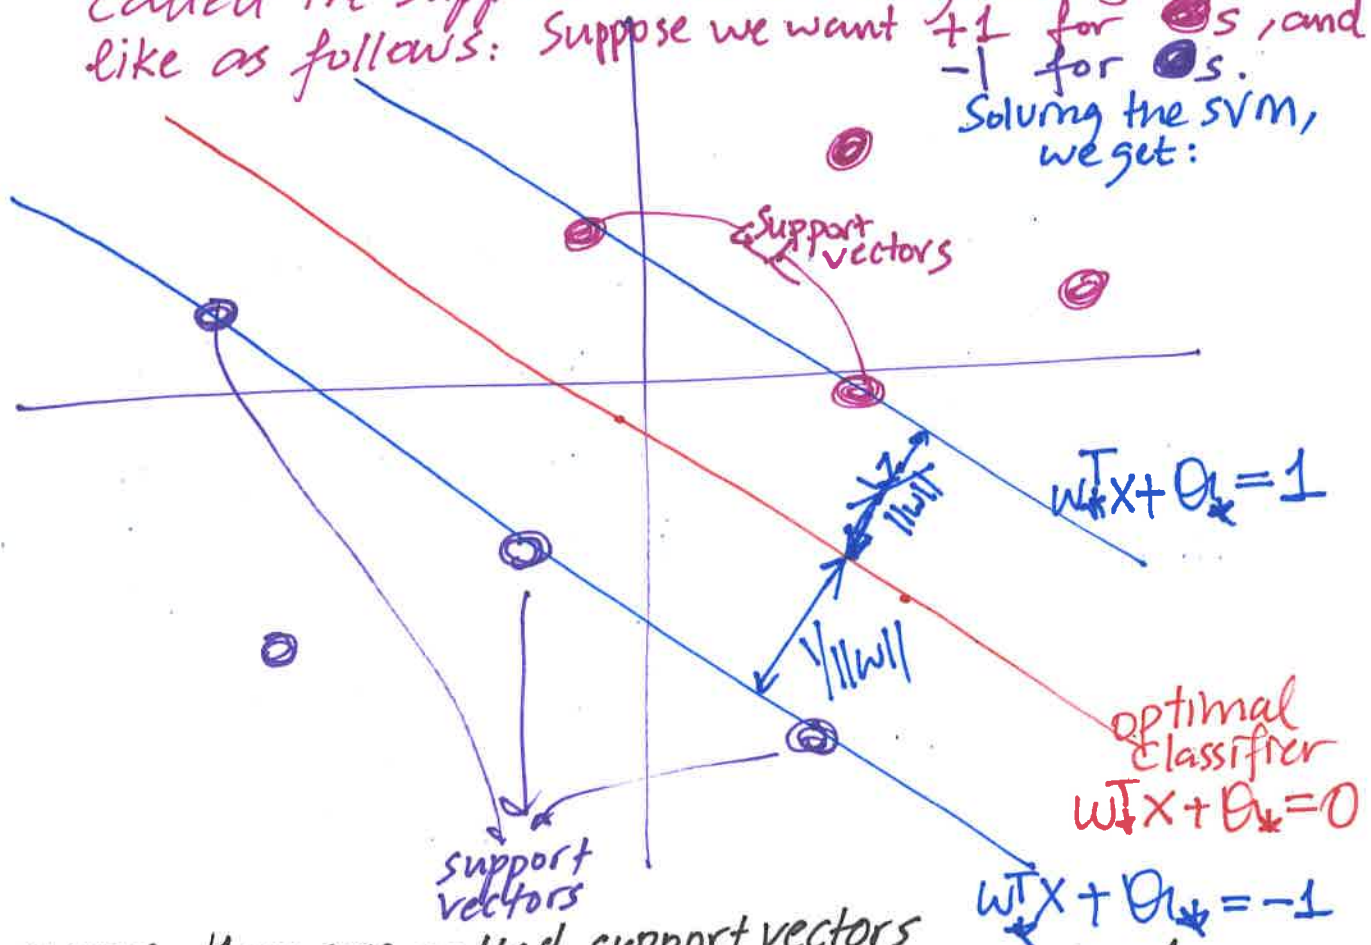 called the supp
like as follows: Suppose we want +1 for s, and
-1 for s.
Solving the SVM,
we get:
support
vectors
w*ᵀx + θ* = 1
1/||w||
1/||w||
optimal
classifier
w*ᵀx + θ* = 0
support
vectors
w*ᵀx + θ* = -1
called support vectors